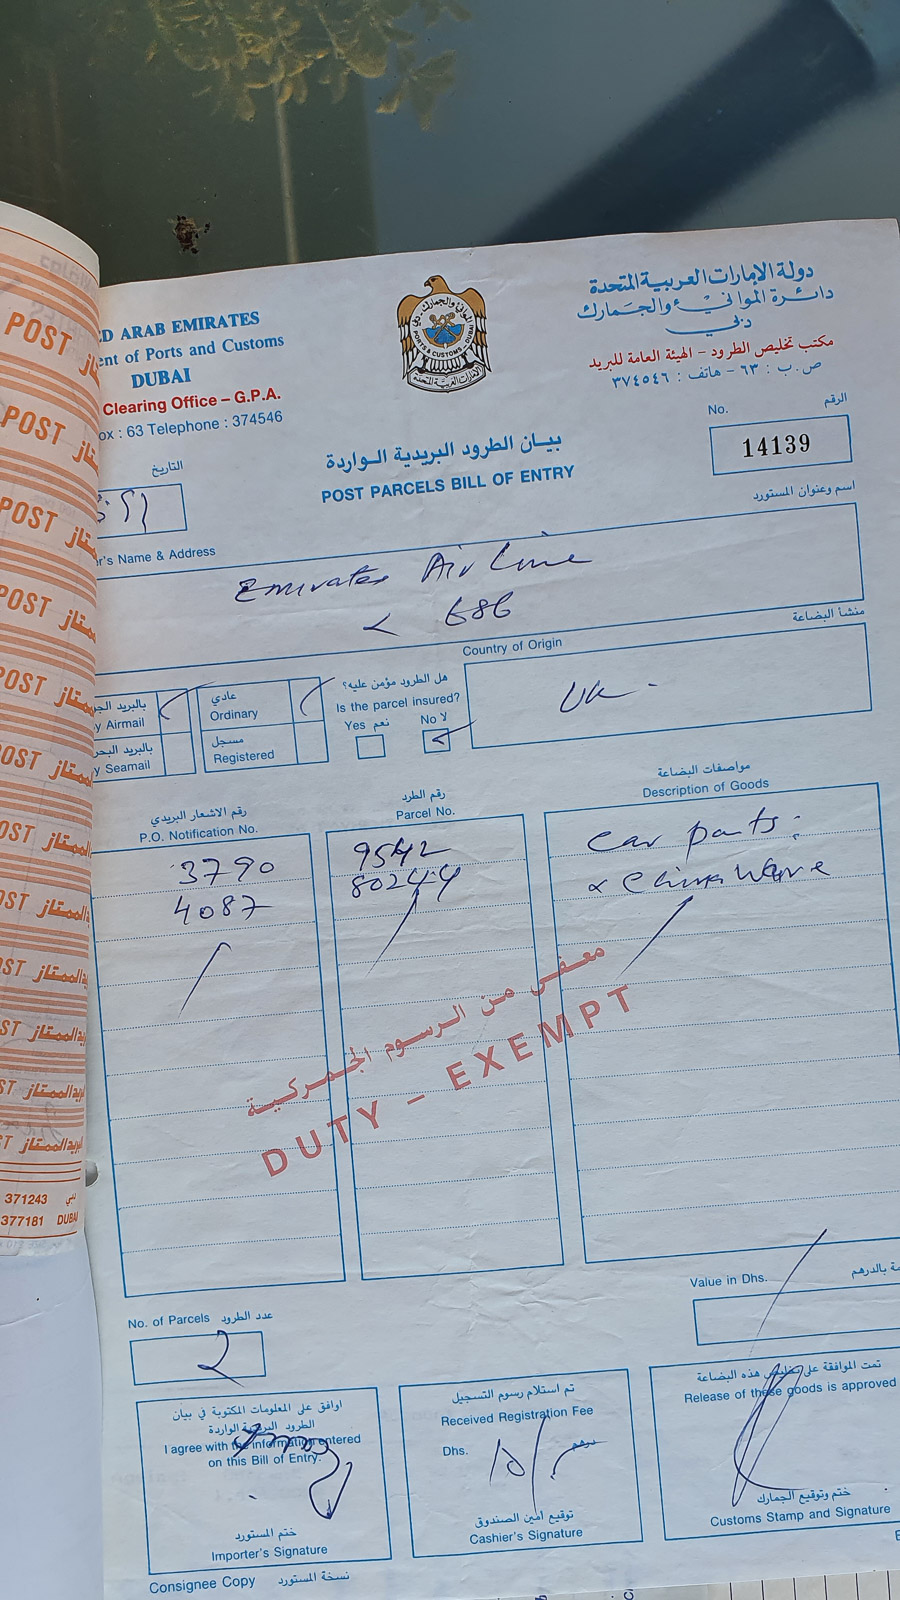 دولة الإمارات العربية المتحدة
دائرة الموانئ والجمارك
دبي
مكتب تخليص الطرود - الهيئة العامة للبريد
ص.ب : ٦٣ - هاتف : ٣٧٤٥٤٦
D ARAB EMIRATES
nt of Ports and Customs
DUBAI
Clearing Office – G.P.A.
ox : 63 Telephone : 374546
PORTS & CUSTOMS – DUBAI
No. الرقم
14139
بيان الطرود البريدية الواردة
POST PARCELS BILL OF ENTRY
التاريخ
r's Name & Address
اسم وعنوان المستورد
Emirates Air Line
686
Country of Origin
منشأ البضاعة
UK -
y Airmail
عادي
Ordinary
y Seamail
مسجل
Registered
هل الطرود مؤمن عليه؟
Is the parcel insured?
Yes نعم No لا
رقم الاشعار البريدي
P.O. Notification No.
رقم الطرد
Parcel No.
مواصفات البضاعة
Description of Goods
3790 9542 Car parts:
4087 80244 & China Ware
معفى من الرسوم الجمركية
DUTY – EXEMPT
No. of Parcels عدد الطرود
2
Value in Dhs.
بالدرهم
اوافق على المعلومات المكتوبة في بيان
الطرود البريدية الواردة
I agree with the information entered
on this Bill of Entry.
ختم المستورد
Importer's Signature
تم استلام رسوم التسجيل
Received Registration Fee
Dhs. درهم
توقيع امين الصندوق
Cashier's Signature
تمت الموافقة على تخليص هذه البضاعة
Release of these goods is approved
ختم وتوقيع الجمارك
Customs Stamp and Signature
Consignee Copy نسخة المستورد
POST
POST
POST
POST
POST
البريد الممتاز
371243 دبي
377181 DUBAI